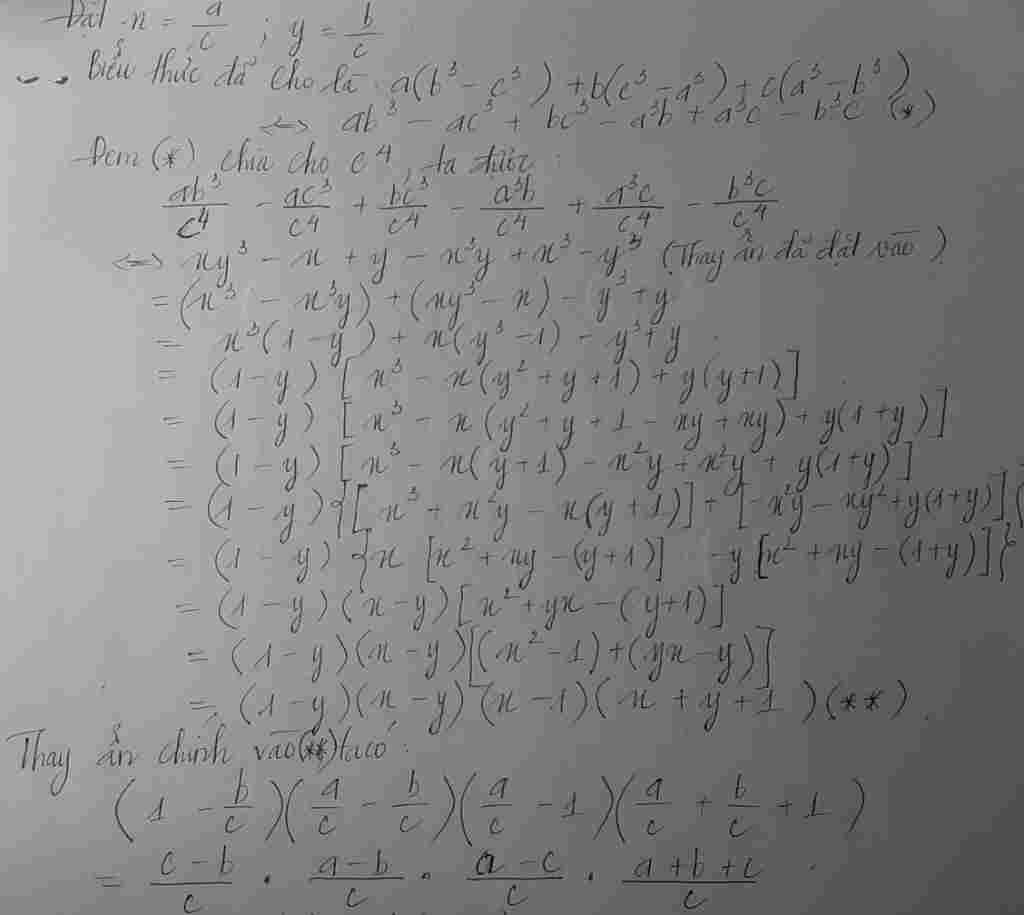 Đặt x = a/c ; y = b/c
Biểu thức đã cho là a(b³ - c³) + b(c³ - a³) + c(a³ - b³)
<=> ab³ - ac³ + bc³ - a³b + a³c - b³c (*)
Đem (*) chia cho c⁴, ta được :
ab³/c⁴ - ac³/c⁴ + bc³/c⁴ - a³b/c⁴ + a³c/c⁴ - b³c/c⁴
<=> xy³ - x + y - x³y + x³ - y³ (Thay ẩn đã đặt vào)
= (x³ - x³y) + (xy³ - x) - y³ + y
= x³(1 - y) + x(y³ - 1) - y³ + y
= (1 - y) [x³ - x(y² + y + 1) + y(y + 1)]
= (1 - y) [x³ - x(y² + y + 1 - xy + xy) + y(1 + y)]
= (1 - y) [x³ - x(y + 1) - x²y + x²y + y(1 + y)]
= (1 - y) {[x³ + x²y - x(y + 1)] + [-x²y - xy² + y(1 + y)]}
= (1 - y) {x [x² + xy - (y + 1)] - y [x² + xy - (1 + y)]}
= (1 - y)(x - y) [x² + yx - (y + 1)]
= (1 - y)(x - y) [(x² - 1) + (yx - y)]
= (1 - y)(x - y)(x - 1)(x + y + 1) (**)
Thay ẩn chính vào (**) ta có :
(1 - b/c)(a/c - b/c)(a/c - 1)(a/c + b/c + 1)
= (c - b)/c . (a - b)/c . (a - c)/c . (a + b + c)/c